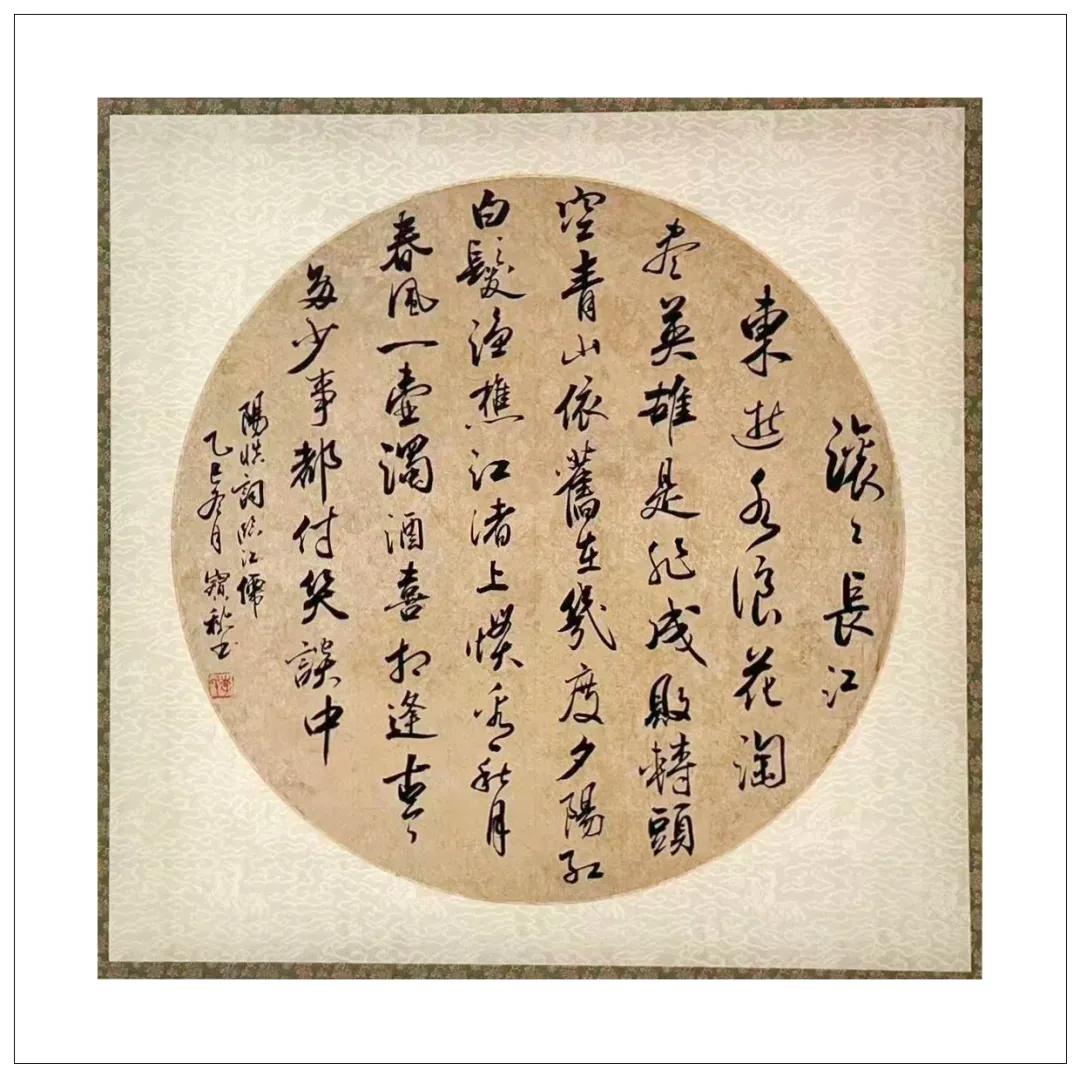 滾〻長江
東逝水浪花淘
盡英雄是非成敗轉頭
空青山依舊在幾度夕陽紅
白髮漁樵江渚上慣看秋月
春風一壺濁酒喜相逢古今
多少事都付笑談中
陽慎詞臨江僊
乙巳冬月 寶秋書